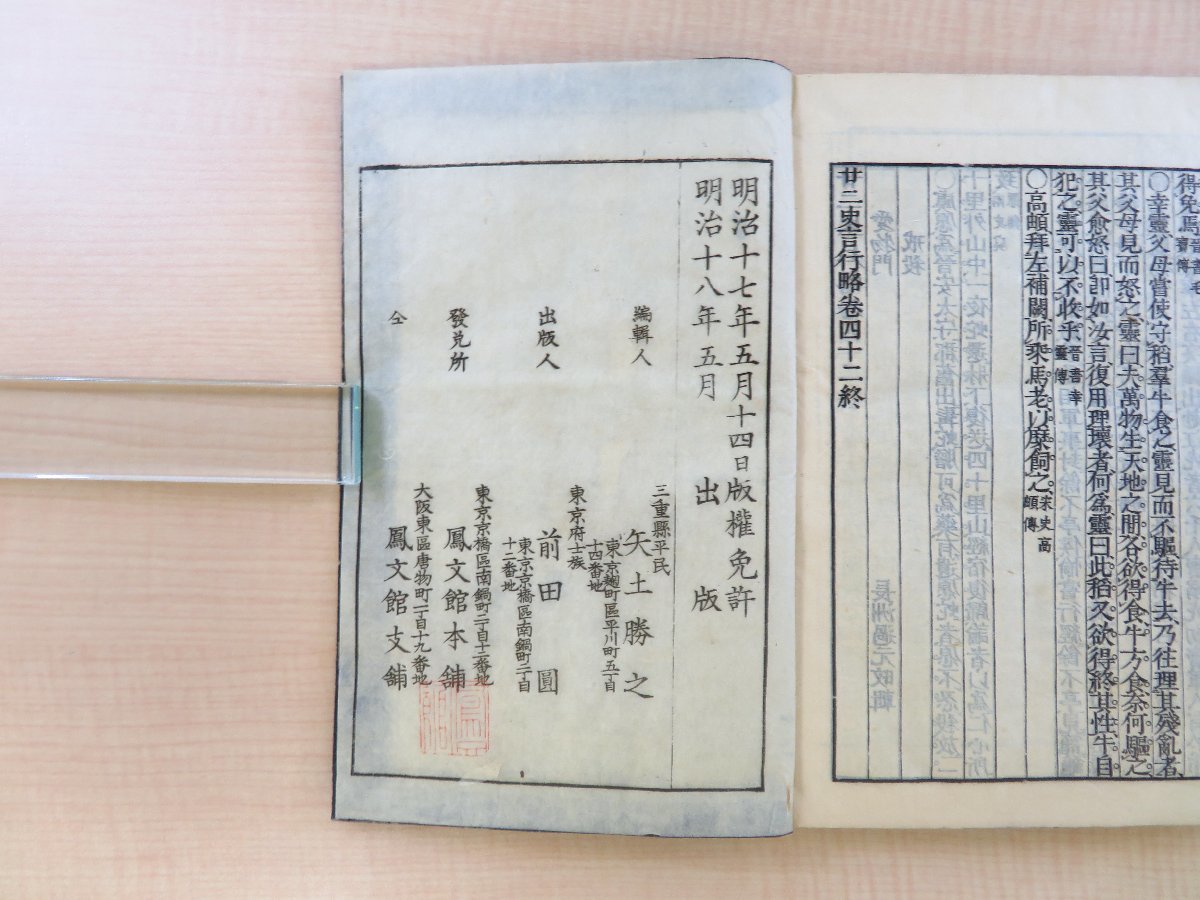 得免馬晉書毛寶傳
〇幸靈父母嘗使守稻羣牛食之靈見而不驅待牛去乃往理其殘亂者
其父母見而怒之靈曰夫萬物生天地之間各欲得食牛方食奈何驅之
其父愈怒曰卽如汝言復用理壞者何爲靈曰此稻又欲得終其性牛自
犯之靈可以不收乎晉書幸靈傳
〇高頔拜左補闕所乘馬老以糜飼之宋史高頔傳
廿二史言行略卷四十二終
明治十七年五月十四日版權免許
明治十八年五月 出版
三重縣平民
編輯人 矢土勝之
東京麹町區平川町五丁目十四番地
東京府士族
出版人 前田圓
東京京橋區南鍋町二丁目十二番地
東京京橋區南鍋町二丁目十二番地
發兌所 鳳文館本舖
大阪東區唐物町二丁目十九番地
仝 鳳文館支舖